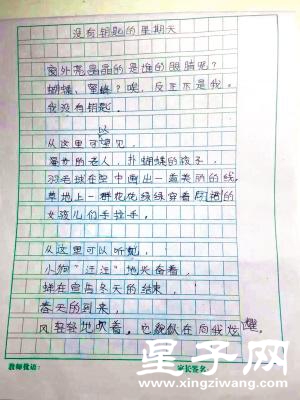 没有钥匙的星期天
窗外亮晶晶的是谁的眼睛呢?
蝴蝶、蜜蜂?唉,反正不是我。
我没有钥匙。
从这里可以望见,
的老人,扑蝴蝶的孩子,
羽毛球在空中画出一道美丽的线。
草地上一群花花绿绿穿着的
女孩儿们手拉手。
从这里可以听见,
小狗“汪汪”地兴奋着,
蝉在宣告冬天的结束,
春天的到来,
风轻轻地吹着,也貌似在向我炫耀。
教师批语:
家长签名:
星子网
www.xingziwang.com